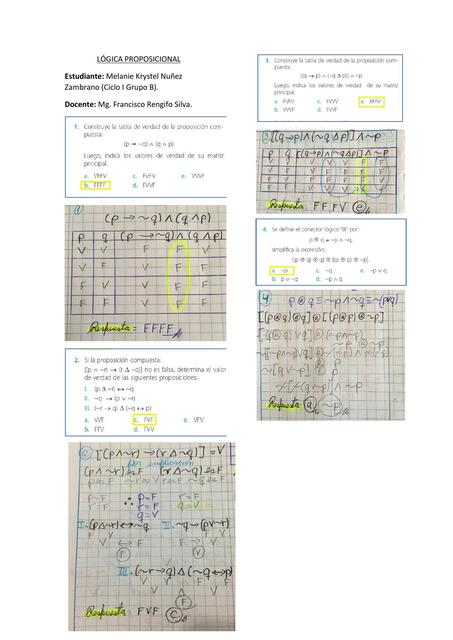 LÓGICA PROPOSICIONAL
Estudiante: Melanie Krystel Nuñez
Zambrano (Ciclo I Grupo B).
Docente: Mg. Francisco Rengifo Silva.
1. Construye la tabla de verdad de la proposición com-
puesta:
(p → ~q) ∧ (q ∧ p)
Luego, indica los valores de verdad de su matriz
principal.
a. VFFV c. FVFV e. VVVF
b. FFFF d. FVVF
1
(p → ~q) ∧ (q ∧ p)
p q (p → ~q) ∧ (q ∧ p)
V V F F V
V F V F F
F V V F F
F F V F F
Respuesta = FFFF
2. Si la proposición compuesta:
[(p ∧ ~r) → (r Δ ~q)] no es falsa, determina el valor
de verdad de las siguientes proposiciones:
I. (p Δ ~r) ↔ ~q
II. ~q → (p ∨ ~r)
III. (~r → q) Δ (~q ↔ p)
a. VVF c. FVF e. VFV
b. FFF d. FVV
2 [(p∧~r) → (r Δ ~q)] = V
por implicación
(p∧~r) es F (r Δ ~q) es F
∴ p = F r = F
r = F
q = V
I. (p∧~r) ↔ ~q II. ~q → (p∨~r)
F V
III. (~r → q) Δ (~q ↔ p)
F
Respuesta = FVF c
3. Construye la tabla de verdad de la proposición com-
puesta:
[(q → p) ∧ (~q Δ p)] ∧ ~p.
Luego, indica los valores de verdad de su matriz
principal.
a. FVFV c. FVVV e. FFFV
b. VVVV d. FVVF
3 [(q→p) ∧ (~q Δ p)] ∧ ~p
p q [(q→p) ∧ (~q Δ p)] ∧ ~p
Respuesta FFFV e
4. Se define el conector lógico "⊛" por:
p ⊛ q = ~p ∧ ~q,
simplifica la expresión:
[(p ⊛ q) ⊛ q] ⊛ [(p ⊛ p) ⊛ ~p].
a. ~p c. ~q e. ~p ∨ q
b. p ∨ ~q d. ~p ∧ q
4 p ⊛ q ≡ ~p ∧ ~q ≡ ~(p∨q)
[(p⊛q)⊛q] ⊛ [(p⊛p)⊛~p]
Respuesta: a ~p